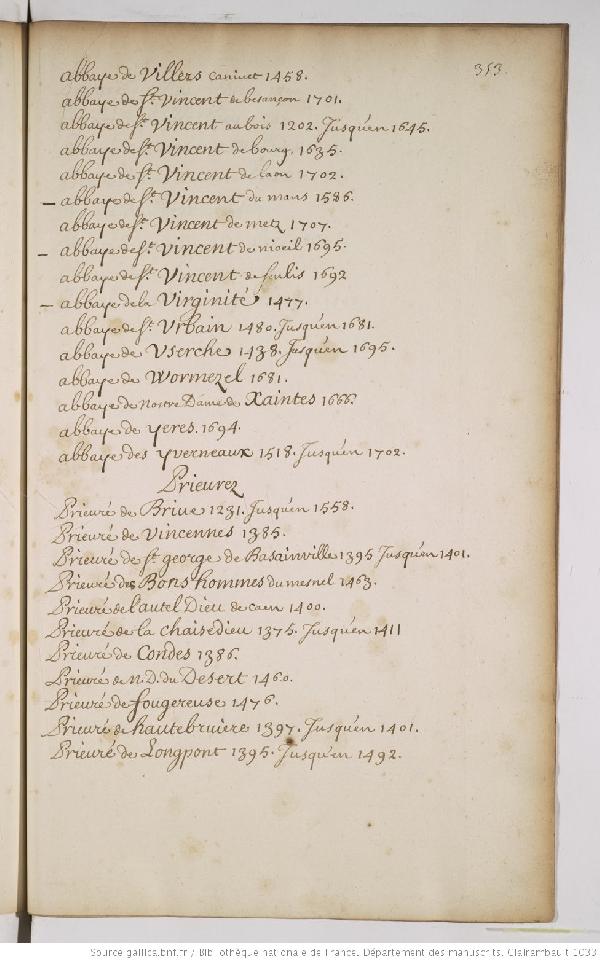 353.
abbaye de Villers canivet 1458.
abbaye de st. Vincent de besançon 1701.
abbaye de st. Vincent au bois 1202. Jusqu'en 1645.
abbaye de st. Vincent de bourg. 1635.
abbaye de st. Vincent de laon 1702.
– abbaye de st. Vincent du mans 1586.
abbaye de st. Vincent de metz 1707.
– abbaye de st. Vincent de nioeil 1695.
abbaye de st. Vincent de senlis 1692
– abbaye de la Virginité 1477.
abbaye de st. Vrbain 1480. Jusqu'en 1681.
abbaye de Vserche 1438. Jusqu'en 1695.
abbaye de Wormezel 1681.
abbaye de Nostre Dame de Xaintes 1666.
abbaye de yeres. 1694.
abbaye des yverneaux 1518. Jusqu'en 1702.
Prieurez
Prieuré de Briue 1231. Jusqu'en 1558.
Prieuré de Vincennes 1385.
Prieuré de st. george de Basainville 1395 Jusqu'en 1401.
Prieuré des Bons hommes du mesnel 1463.
Prieuré de l'autel Dieu de caen 1400.
Prieuré de la chaisedieu 1375. Jusqu'en 1411
Prieuré de Condes 1386.
Prieuré de n.D. du Desert 1460.
Prieuré de fougereuse 1476.
Prieuré de hautebruiere 1397. Jusqu'en 1401.
Prieuré de Longpont 1395. Jusqu'en 1492.
Source gallica.bnf.fr / Bibliothèque nationale de France. Département des manuscrits. Clairambault 1033